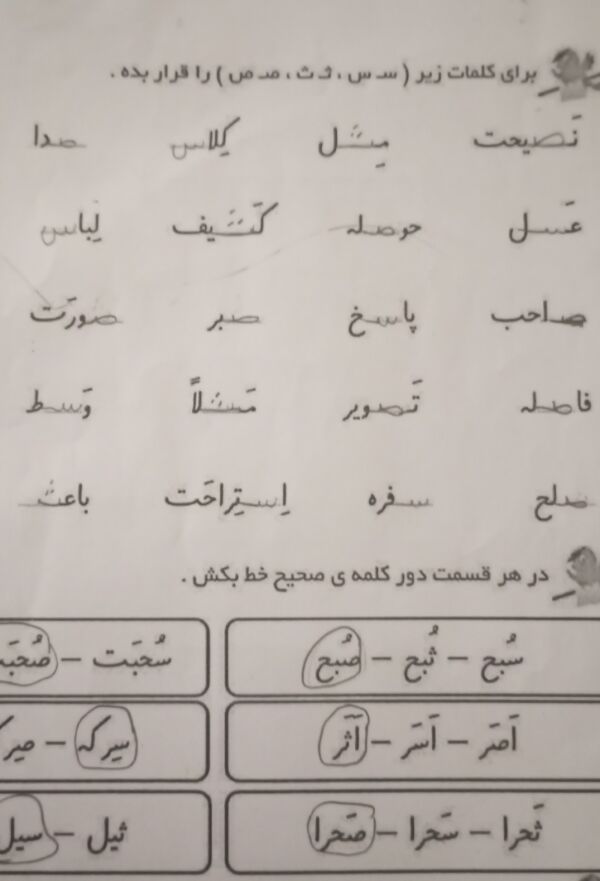 برای کلمات زیر ( سـ س ، ثـ ث ، صـ ص ) را قرار بده .
نَصیحت مِثل کِلاس صدا
عَسل حوصله کَثیف لِباس
صاحب پاسخ صبر صورَت
فاصله تَصویر مَثلاً وَسط
صلح سفره اِستِراحَت باعث
در هر قسمت دور کلمه ی صحیح خط بکش .
سُبح – ثُبح – صُبح
سُحبَت – صُحبَت
اَصَر – اَسَر – اَثَر
سِرکه –
ثَحرا – سَحرا – صَحرا
ثیل – سیل